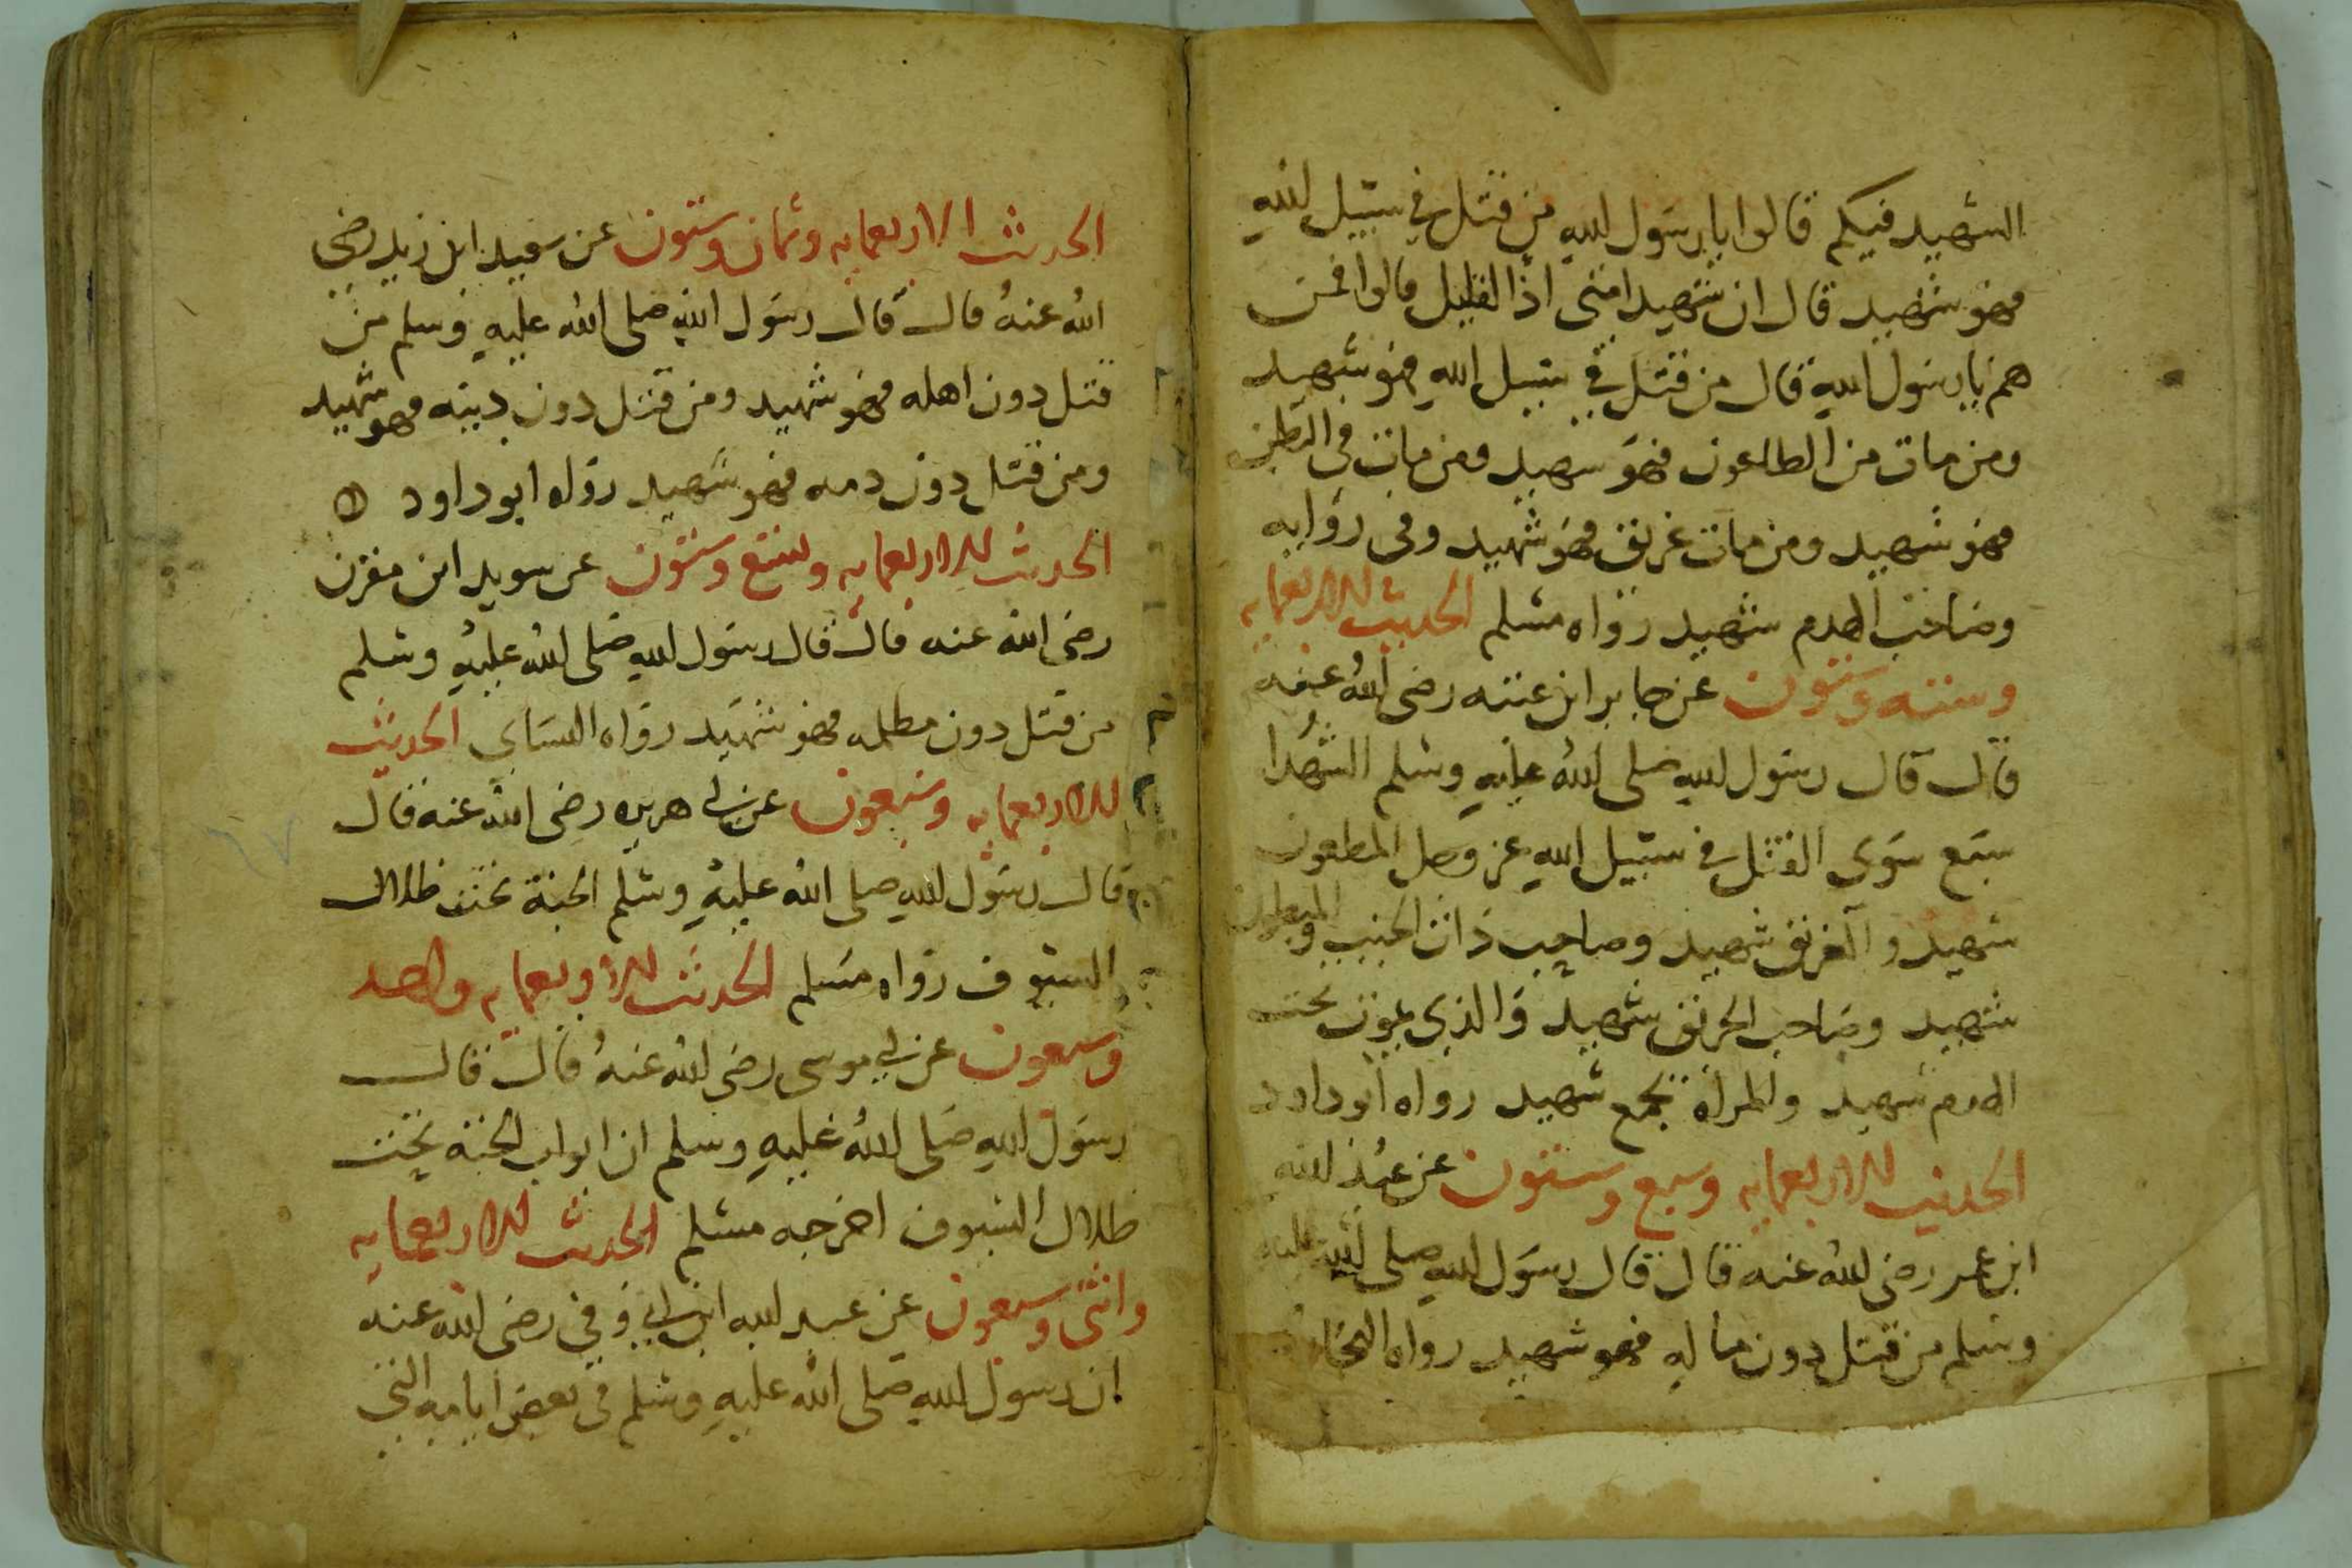 الشهيد فيكم قالوا يا رسول الله من قتل في سبيل الله
فهو شهيد قال ان شهيد امتى اذا لقليل قالوا فمن
هم يا رسول الله قال من قتل في سبيل الله فهو شهيد
ومن مات من الطاعون فهو شهيد ومن مات في البطن
فهو شهيد ومن مات غريق فهو شهيد وفى روايه
وصاحب الهدم شهيد رواه مسلم الحديث الاربعمايه
وستة وستون عن جابر ابن عتيه رضى الله عنه
قال قال رسول الله صلى الله عليه وسلم الشهدا
سبع سوى القتل في سبيل الله عز وجل المطعون
شهيد والغريق شهيد وصاحب ذات الجنب والمبطون
شهيد وصاحب الحريق شهيد والذي يموت تحت
الهدم شهيد والمراة بجمع شهيد رواه ابو داود
الحديث الاربعمايه وسبع وستون عن عبد الله
ابن عمر رضى الله عنه قال قال رسول الله صلى الله عليه
وسلم من قتل دون ماله فهو شهيد رواه البخارى
الحديث الاربعمايه وثمان وستون عن سعيد ابن زيد رضى
الله عنه قال قال رسول الله صلى الله عليه وسلم من
قتل دون اهله فهو شهيد ومن قتل دون دينه فهو شهيد
ومن قتل دون دمه فهو شهيد رواه ابو داود
الحديث الاربعمايه وتسع وستون عن سويد ابن مقرن
رضى الله عنه قال قال رسول الله صلى الله عليه وسلم
من قتل دون مظلمه فهو شهيد رواه النساى الحديث
الاربعمايه وسبعون عن ابى هريره رضى الله عنه قال
قال رسول الله صلى الله عليه وسلم الجنة تحت ظلال
السيوف رواه مسلم الحديث الاربعمايه واحد
وسبعون عن ابى موسى رضى الله عنه قال قال
رسول الله صلى الله عليه وسلم ان ابواب الجنة تحت
ظلال السيوف اخرجه مسلم الحديث الاربعمايه
واثنى وسبعون عن عبد الله ابن ابى وفى رضى الله عنه
ان رسول الله صلى الله عليه وسلم في بعض ايامه التى